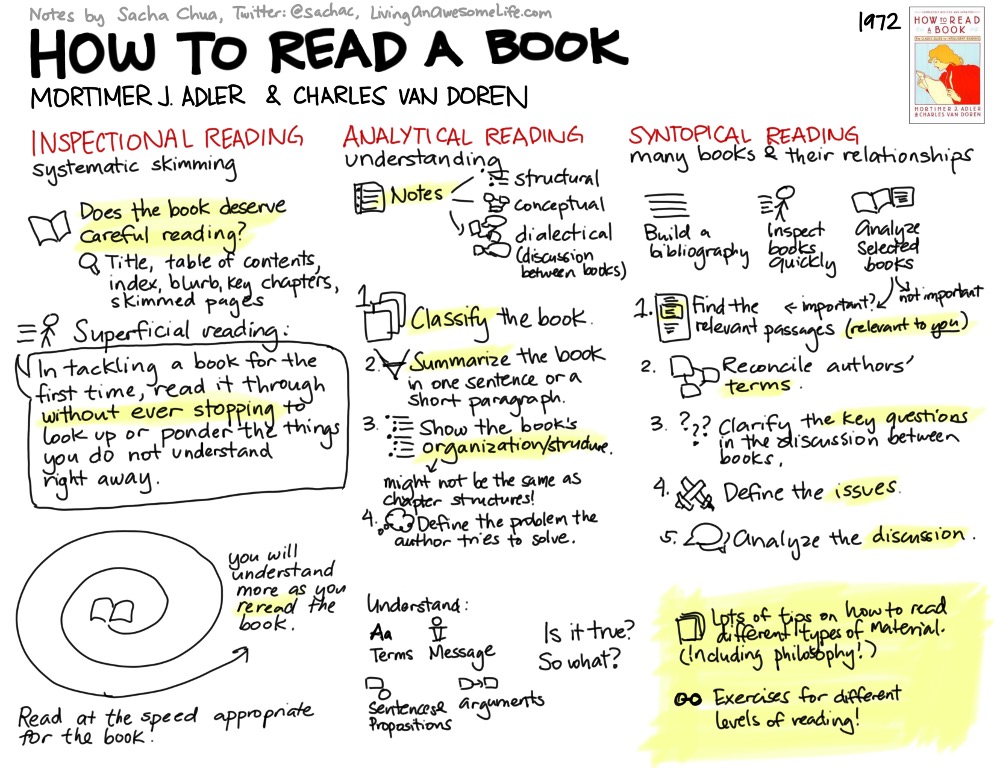 Notes by Sacha Chua, Twitter: @sachac, LivingAnAwesomeLife.com
HOW TO READ A BOOK
MORTIMER J. ADLER & CHARLES VAN DOREN
1972
HOW TO READ
A BOOK
MORTIMER J. ADLER
& CHARLES VAN DOREN
INSPECTIONAL READING
systematic skimming
Does the book deserve
careful reading?
Title, table of contents,
index, blurb, key chapters,
skimmed pages
Superficial reading:
In tackling a book for the
first time, read it through
without ever stopping to
look up or ponder the things
you do not understand
right away.
you will
understand
more as you
reread the
book.
Read at the speed appropriate
for the book!
ANALYTICAL READING
understanding
Notes
structural
conceptual
dialectical
(discussion
between books)
1. Classify the book.
2. Summarize the book
in one sentence or a
short paragraph.
3. Show the book's
organization/structure.
might not be the same as
chapter structures!
4. Define the problem the
author tries to solve.
Understand:
Aa
Terms
Message
Sentences &
Propositions
arguments
Is it true?
So what?
SYNTOPICAL READING
many books & their relationships
Build a
bibliography
Inspect
books
quickly
Analyze
selected
books
important?
not important
1. Find the
relevant passages (relevant to you)
2. Reconcile authors'
terms.
3. ??? Clarify the key questions
in the discussion between
books.
4. Define the issues.
5. Analyze the discussion.
Lots of tips on how to read
different types of material.
(including philosophy!)
Exercises for different
levels of reading!